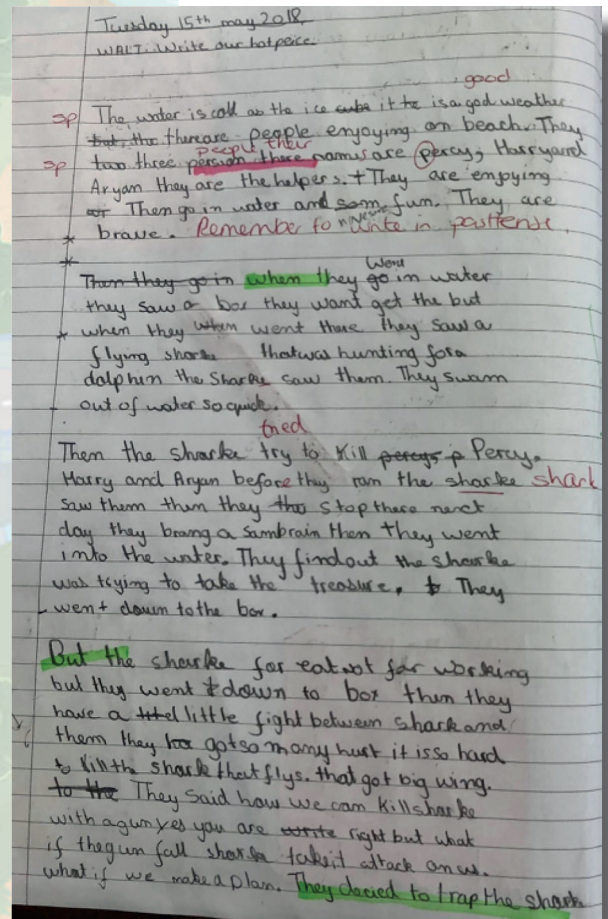 Tuesday 15th may 2018
WALT: Write our hotpeice.
good
sp The water is coll as the ice cube it is a god weather
but, the thereare people enjoying on beach. They
people their
sp two three persion there namus are percy, Harry and
Aryan they are the helpers. They are enpying
Then go in water and som fun. They are
brave. Remember to write in past tense.
Went
Then they go in when they go in water
they saw a box they want get the but
when they when went there they saw a
flying sharke thatwas hunting fora
dalphin the Sharke saw them. They swam
out of water so quick.
tried
Then the sharke try to kill percys p Percy.
Harry and Aryan before thy ran the sharke shark
saw them then they tho stop there next
day they brang a sambrain then they went
into the water. They findout the sharke
was trying to take the treasure, They
went down to the box.
But the sharke for eat not for working
but they went down to box then they
have a little fight between shark and
them they got so many hurt it isso hard
to kill the shark that flys. that got big wing.
to the They said how we can kill sharke
with a gun yes you are write right but what
if thegun fall sharke takeit attack on us.
what if we make a plan. They decied to trap the shark